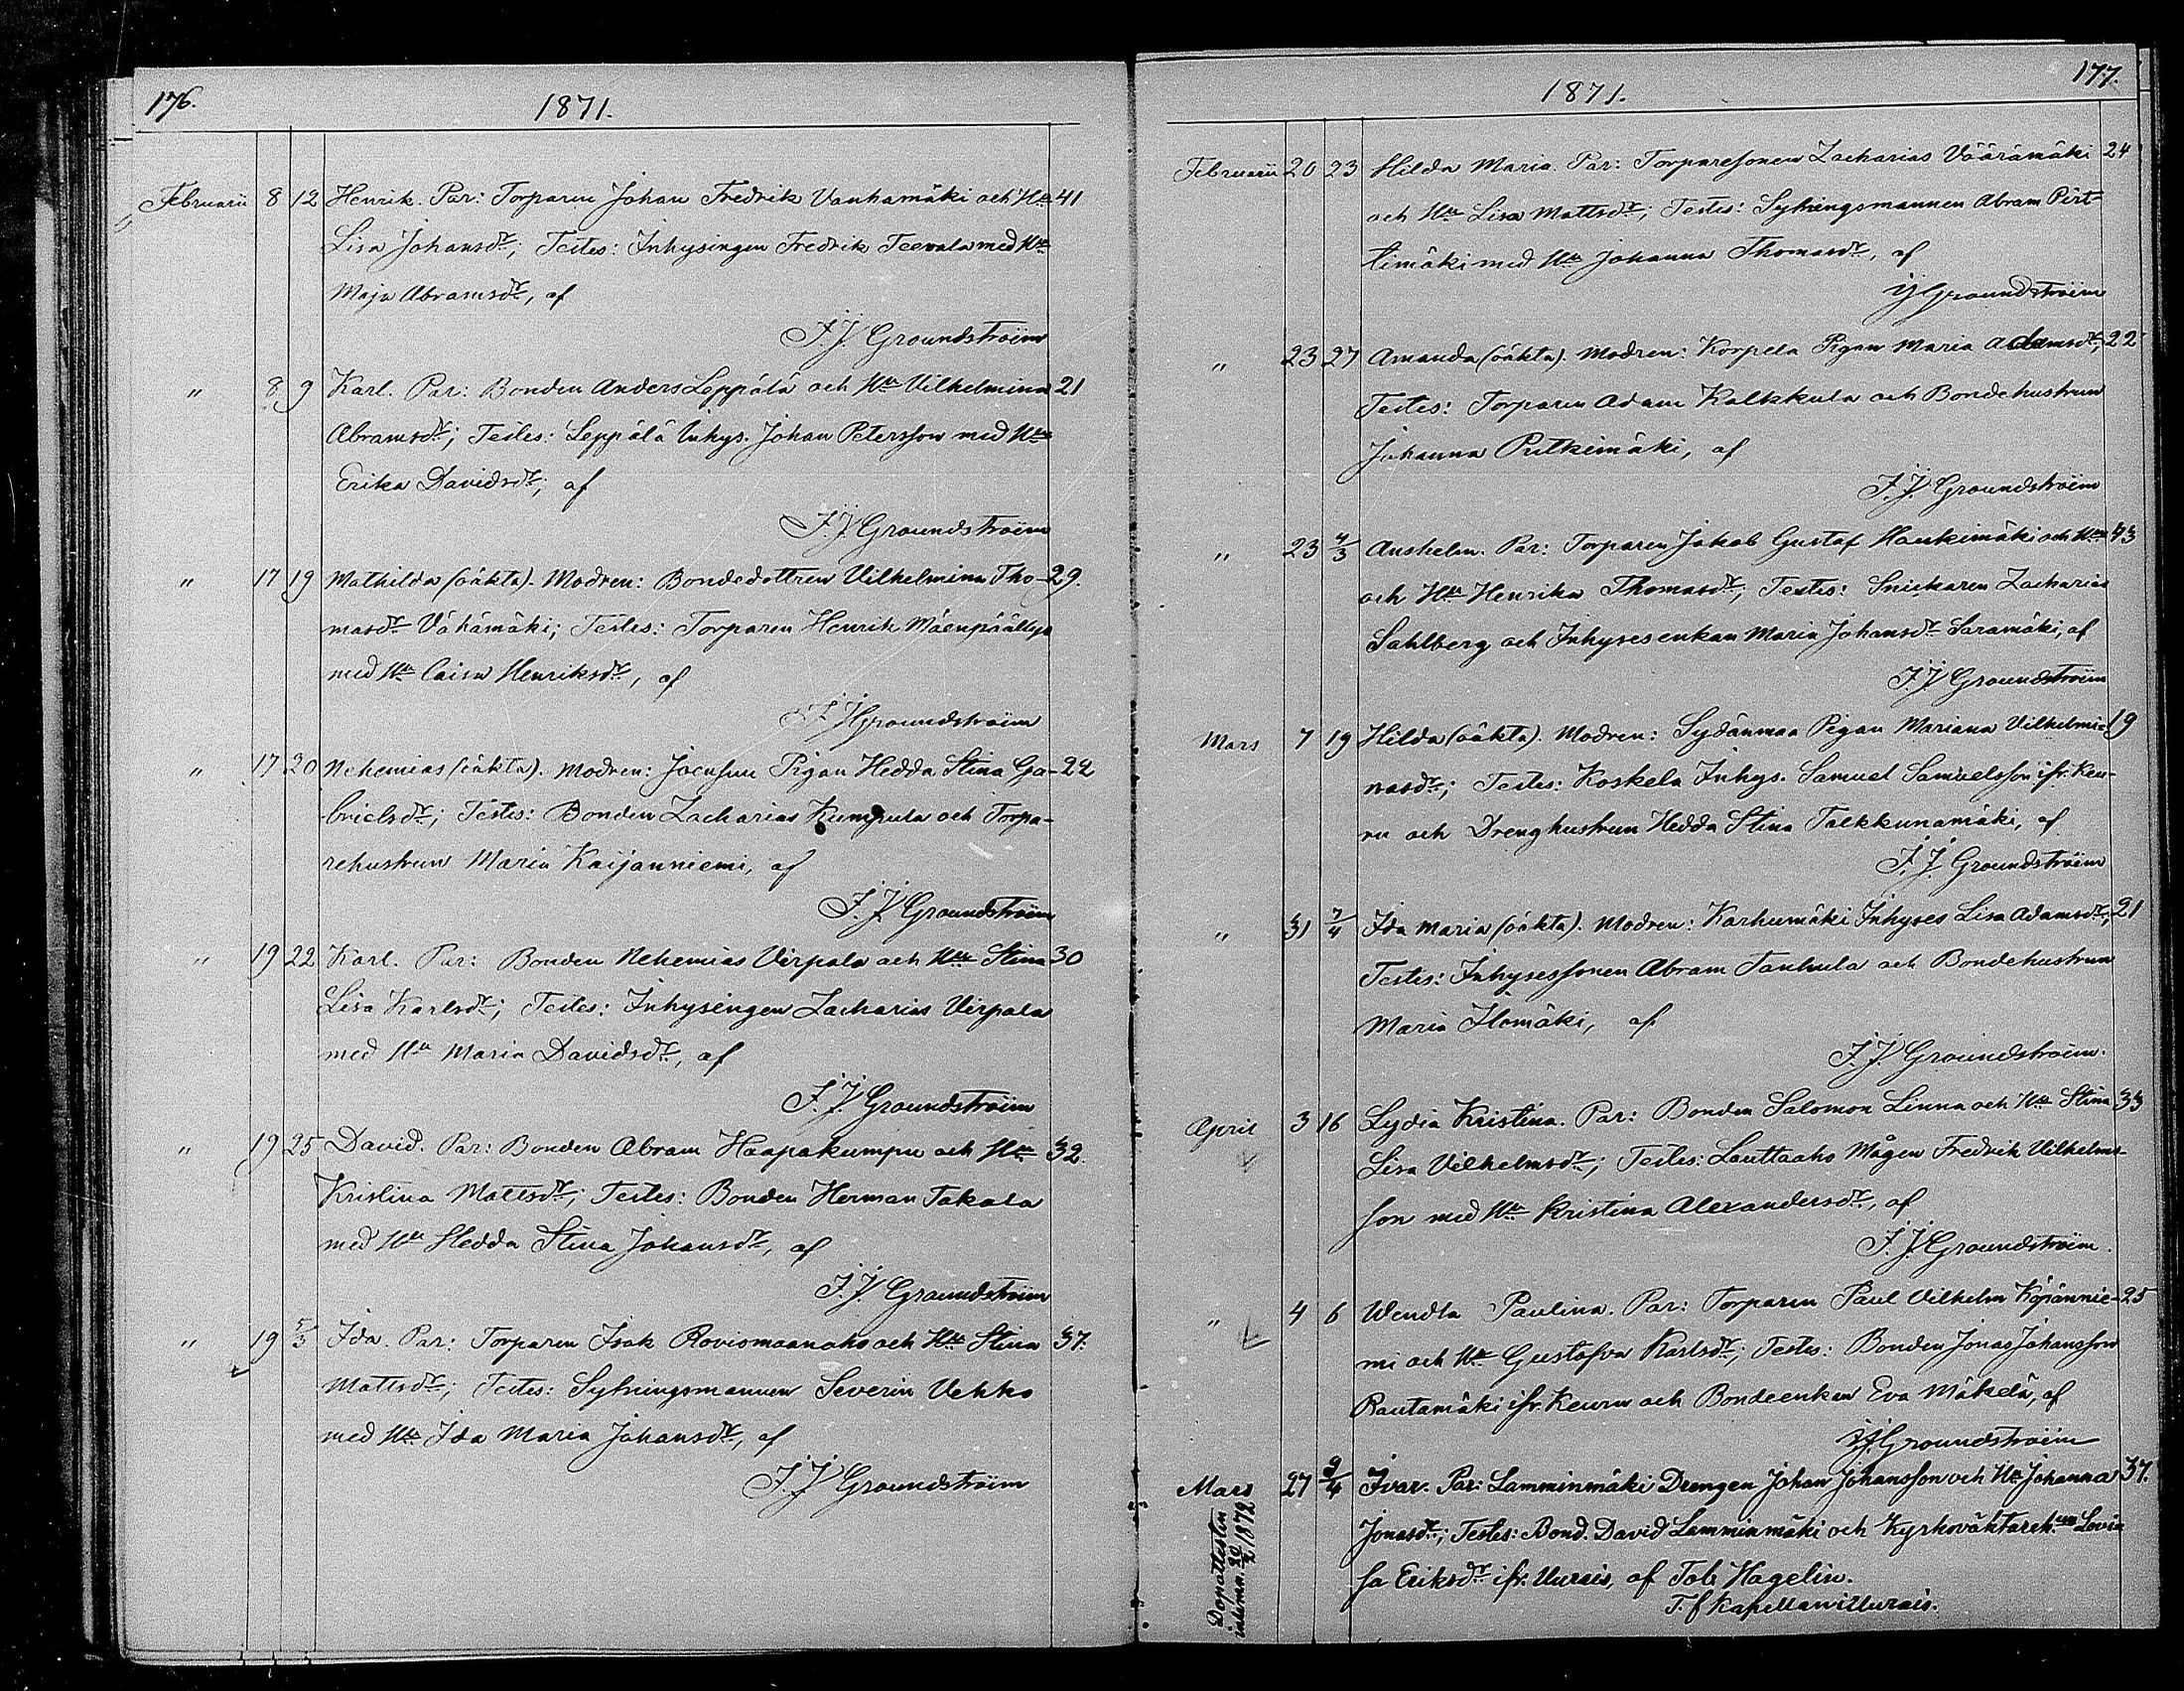 176.
1871.
Februarii 8 12 Henrik. Par: Torparen Johan Fredrik Vanhamäki och Hu 41
Lisa Johansdr; Testes: Inhysingen Fredrik Teevala med Hu
Maja Abramsdr, af
F. J. Groundstroïm
" 8 9 Karl. Par: Bonden Anders Leppälä och Hu Vilhelmina 21
Abramsdr; Testes: Leppälä Inhys. Johan Petersson med Hu
Erika Davidsdr, af
F. J. Groundstroïm
" 17 19 Mathilda (oäkta). Modren: Bondedottren Vilhelmina Tho- 29.
masdr Vähämäki; Testes: Torparen Henrik Mäenpäällys
med Hu Caisa Henriksdr, af
F. J. Groundstroïm
" 17 20 Nehemias (oäkta). Modren: Joensuu Pigan Hedda Stina Ga- 22
brielsdr; Testes: Bonden Zacharias Kumpula och Torpa-
rehustrun Maria Kaijanniemi, af
F. J. Groundstroïm
" 19 22 Karl. Par: Bonden Nehemias Virpala och Hu Stina 30
Lisa Karlsdr; Testes: Inhysingen Zacharias Virpala
med Hu Maria Davidsdr, af
F. J. Groundstroïm
" 19 25 David. Par: Bonden Abram Haapakumpu och Hu 32.
Kristina Mattsdr; Testes: Bonden Herman Takala
med Hu Hedda Stina Johansdr, af
F. J. Groundstroïm
" 19 5/3 Ida. Par: Torparen Isak Roviomaanaho och Hu Stina 37.
Mattsdr; Testes: Sytningsmannen Severin Vehko
med Hu Ida Maria Johansdr, af
F. J. Groundstroïm
177.
1871.
Februarii 20 23 Hilda Maria. Par: Torparesonen Zacharias Väärämäki 24
och Hu Lisa Mattsdr; Testes: Sytningsmannen Abram Pirt-
timäki med Hu Johanna Thomasdr, af
FJ Groundstroïm
" 23 27 Amanda (oäkta). Modren: Korpela Pigan Maria Adamsdr; 22
Testes: Torparen Adam Kalkkula och Bondehustrun
Johanna Pitkimäki, af
F. J. Groundstroïm
" 23 4/3 Anshelm. Par: Torparen Jakob Gustaf Haukimäki och Hu 43
och Hu Henrika Thomasdr; Testes: Snickaren Zacharias
Sahlberg och Inhysesenkan Maria Johansdr Saramäki, af
F. J. Groundstroïm
Mars 7 19 Hilda (oäkta). Modren: Sydänmaa Pigan Mariana Vilhelmi- 19
nasdr; Testes: Koskela Inhys. Samuel Samuelsson ifr. Keu-
ru och Drenghustrun Hedda Stina Talkkunamäki, af
F. J. Groundstroïm
" 31 7/4 Ida Maria (oäkta). Modren: Karhumäki Inhyses Lisa Adamsdr; 21
Testes: Inhysessonen Abram Tanhula och Bondehustrun
Maria Ilomäki, af
F. J. Groundstroïm.
April 3 16 Lydia Kristina. Par: Bonden Salomon Linna och Hu Stina 33
Lisa Vilhelmsdr; Testes: Lauttaaho Mågen Fredrik Vilhelms-
son med Hu Kristina Alexandersdr, af
F. J. Groundstroïm.
" 4 6 Wendla Paulina. Par: Torparen Paul Vilhelm Köpännie- 25
mi och Hu Gustafva Karlsdr; Testes: Bonden Jonas Johansson
Rautamäki ifr. Keuru och Bondeenkan Eva Mäkelä, af
FJ. Groundstroïm
Mars 27 9/4 Ivar. Par: Lamminmäki Drengen Johan Johansson och Hu Johanna 37.
Jonasdr; Testes: Bond. David Lamminmäki och Kyrkoväktareh:un Lovi-
sa Eriksdr ifr. Uurais, af Tob. Hagelin.
T. f. Kapellan i Uurais.
Dopattesten
inlemn. 20/2 1872